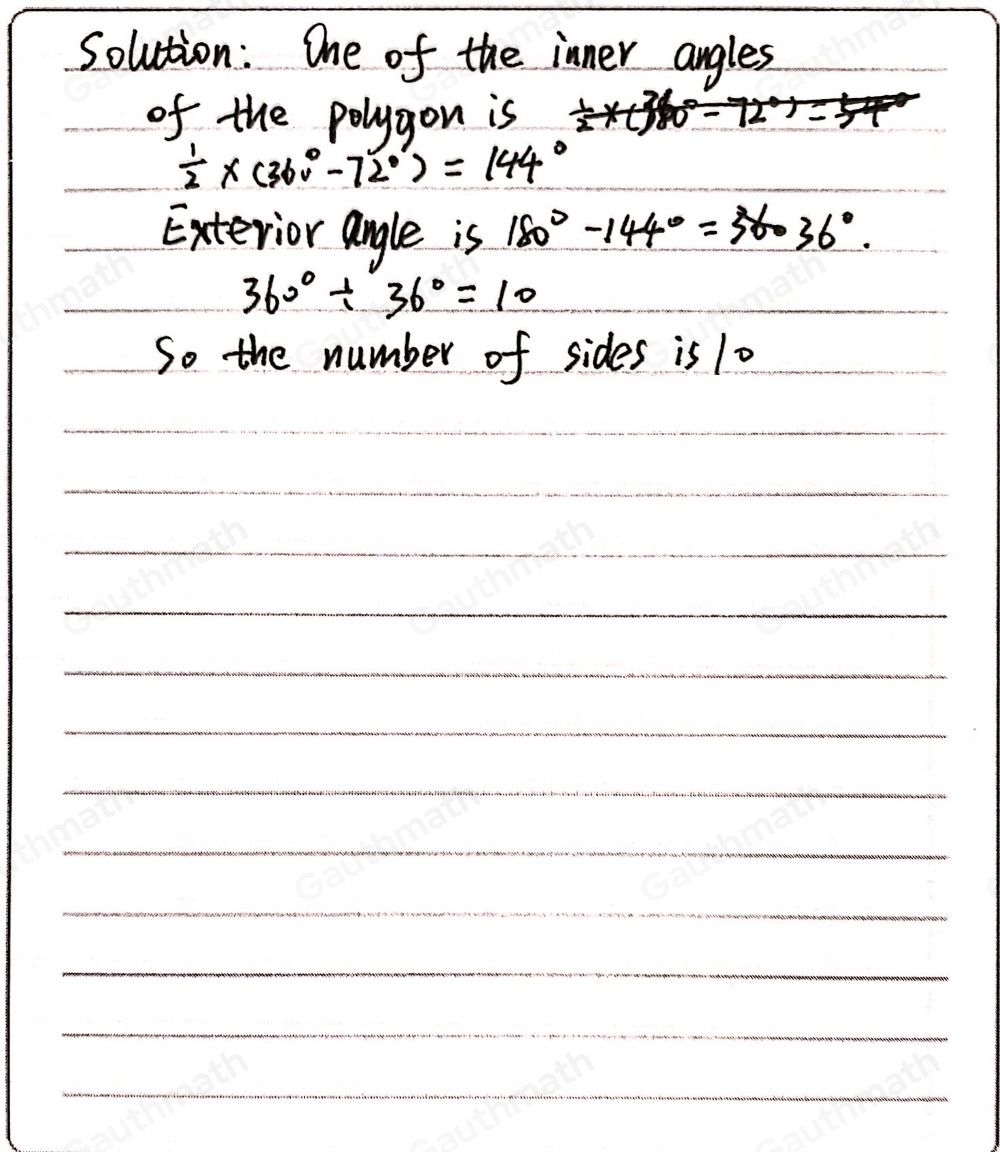 Solution: One of the inner angles
of the polygon is
½ × (360° - 72°) = 144°
Exterior angle is 180° - 144° = 36°.
360° ÷ 36° = 10
So the number of sides is 10
Gauthmath